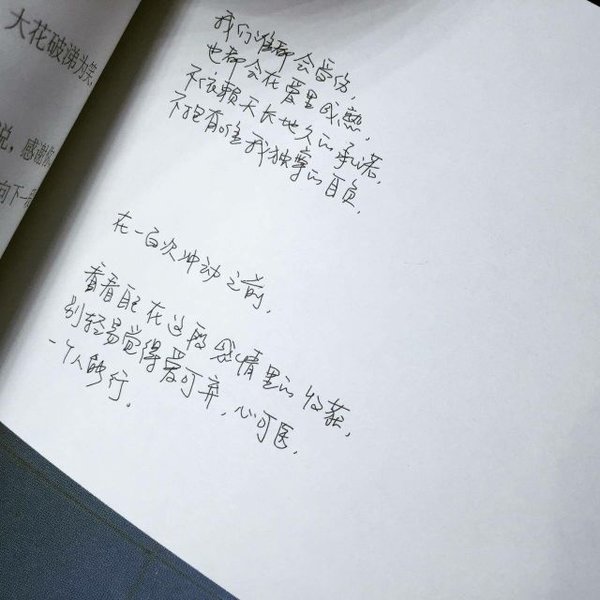 大花破涕为笑
说，感谢你
向下一段
我们谁都会受伤，
也都会在爱里成熟，
不依赖天长地久的承诺，
不抱有唯我独尊的自负。
在一百次冲动之前，
看看自己在这段感情里的收获，
别轻易觉得爱可弃，心可医，
一个人能行。